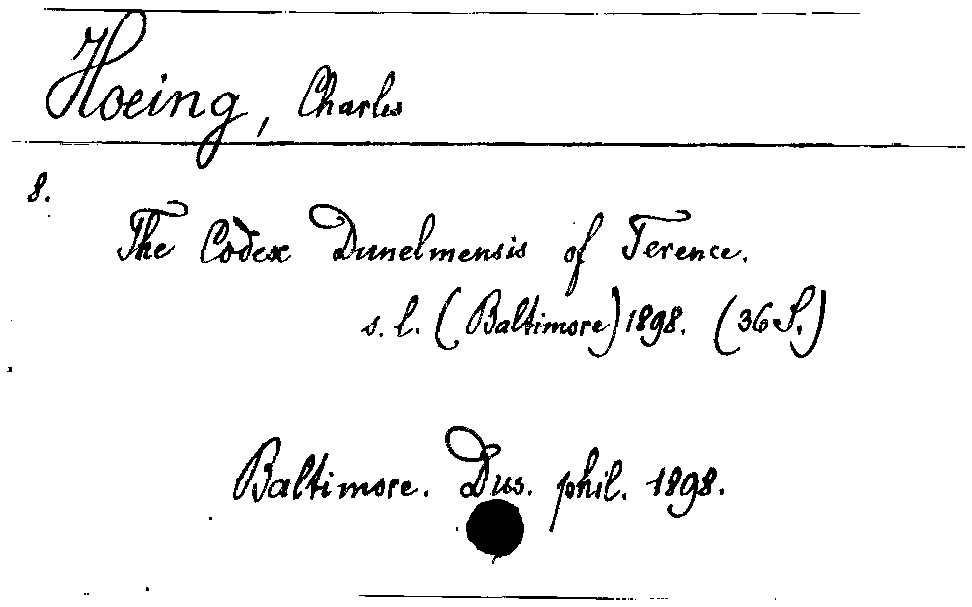 Hoeing, Charles
8.
The Codex Dunelmensis of Terence.
s. l. (Baltimore) 1898. (36 S.)
Baltimore. Diss. phil. 1898.